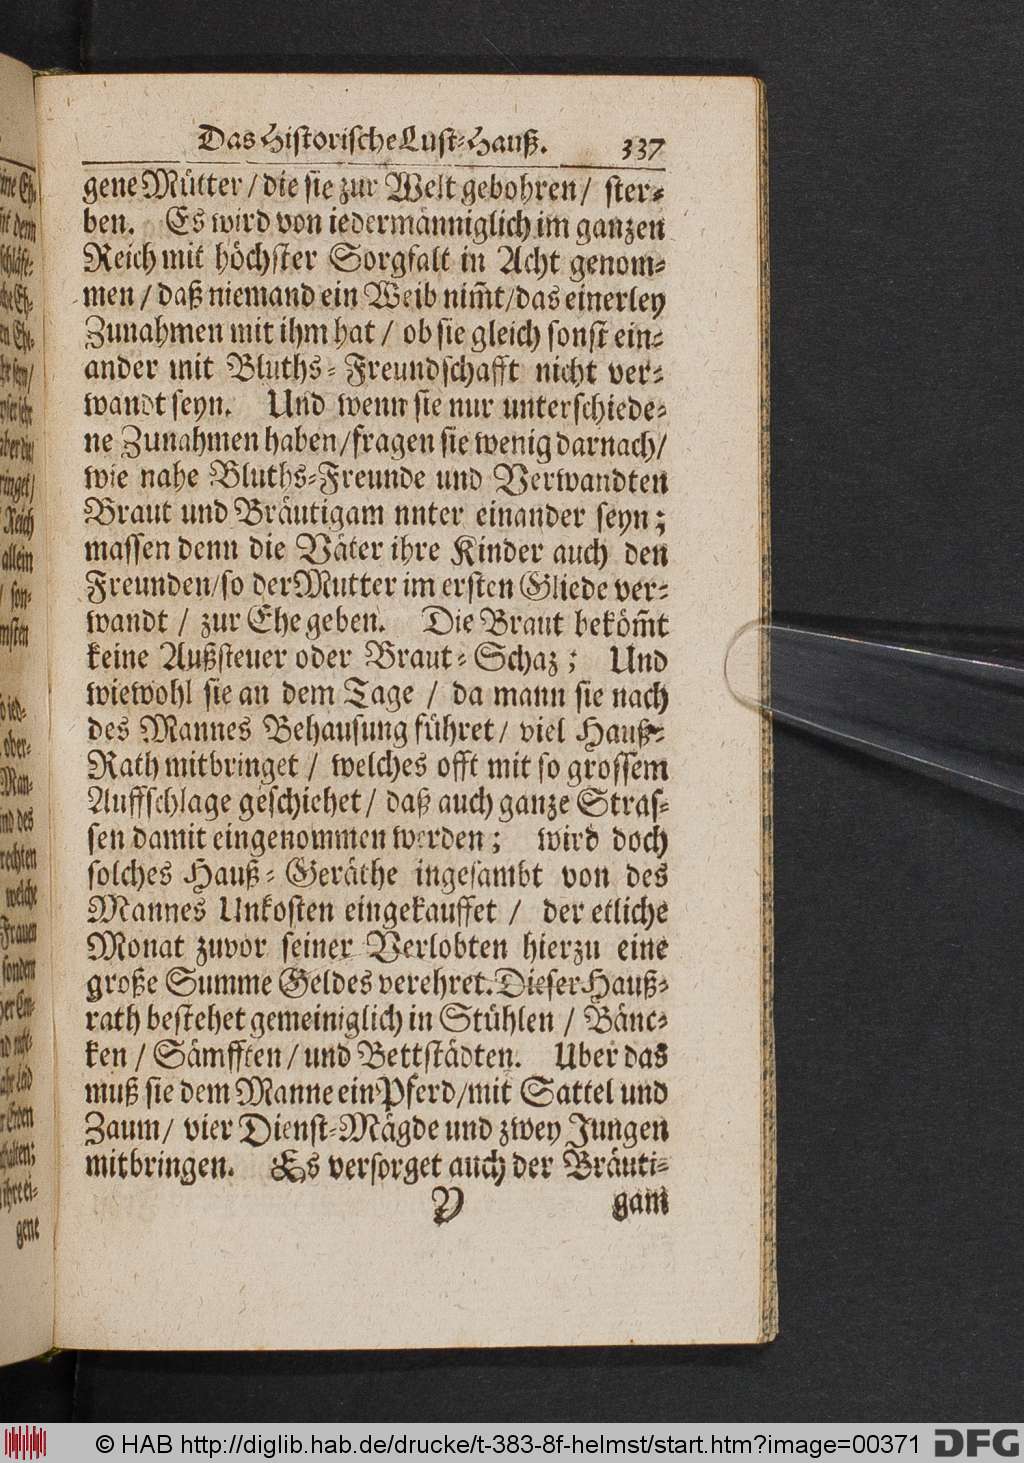 Das Historische Lust-Hauß. 337
gene Mütter / die sie zur Welt gebohren / ster-
ben. Es wird von iedermänniglich im ganzen
Reich mit höchster Sorgfalt in Acht genom-
men / daß niemand ein Weib nim̃t / das einerley
Zunahmen mit ihm hat / ob sie gleich sonst ein-
ander mit Bluths-Freundschafft nicht ver-
wandt seyn. Und wenn sie nur unterschiede-
ne Zunahmen haben / fragen sie wenig darnach /
wie nahe Bluths-Freunde und Verwandten
Braut und Bräutigam nnter einander seyn;
massen denn die Väter ihre Kinder auch den
Freunden / so der Mutter im ersten Gliede ver-
wandt / zur Ehe geben. Die Braut beköm̃t
keine Außsteuer oder Braut-Schaz; Und
wiewohl sie an dem Tage / da mann sie nach
des Mannes Behausung führet / viel Hauß-
Rath mitbringet / welches offt mit so grossem
Auffschlage geschiehet / daß auch ganze Stras-
sen damit eingenommen werden; wird doch
solches Hauß-Geräthe ingesambt von des
Mannes Unkosten eingekauffet / der etliche
Monat zuvor seiner Verlobten hierzu eine
große Summe Geldes verehret. Dieser Hauß-
rath bestehet gemeiniglich in Stühlen / Bänc-
ken / Sämfften / und Bettstädten. Uber das
muß sie dem Manne ein Pferd / mit Sattel und
Zaum / vier Dienst-Mägde und zwey Jungen
mitbringen. Es versorget auch der Bräuti-
Y gam
dem
Reich
allein
/ son-
ober-
Man-
und des
rechten
welche
Frauen
sondern
gene
© HAB http://diglib.hab.de/drucke/t-383-8f-helmst/start.htm?image=00371 DFG